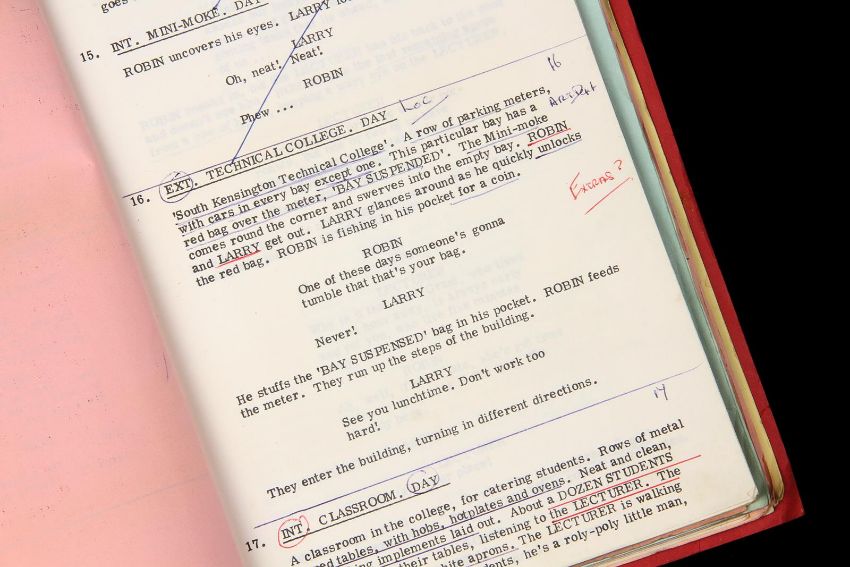 goes
15. INT. MINI-MOKE. DAY
ROBIN uncovers his eyes. LARRY
LARRY
Oh, neat! Neat!
ROBIN
Phew ...
16
16. EXT. TECHNICAL COLLEGE. DAY Loc
Art Dept
'South Kensington Technical College'. A row of parking meters,
with cars in every bay except one. This particular bay has a
red bag over the meter, 'BAY SUSPENDED'. The Mini-moke
comes round the corner and swerves into the empty bay. ROBIN
and LARRY get out. LARRY glances around as he quickly unlocks
the red bag. ROBIN is fishing in his pocket for a coin.
Extras?
ROBIN
One of these days someone's gonna
tumble that that's your bag.
LARRY
Never!
He stuffs the 'BAY SUSPENSED' bag in his pocket. ROBIN feeds
the meter. They run up the steps of the building.
LARRY
See you lunchtime. Don't work too
hard!
They enter the building, turning in different directions.
17. INT. CLASSROOM. DAY
A classroom in the college, for catering students. Rows of metal
tables, with hobs, hotplates and ovens. Neat and clean,
implements laid out. About a DOZEN STUDENTS
their tables, listening to the LECTURER. The
aprons. The LECTURER is walking
he's a roly-poly little man,